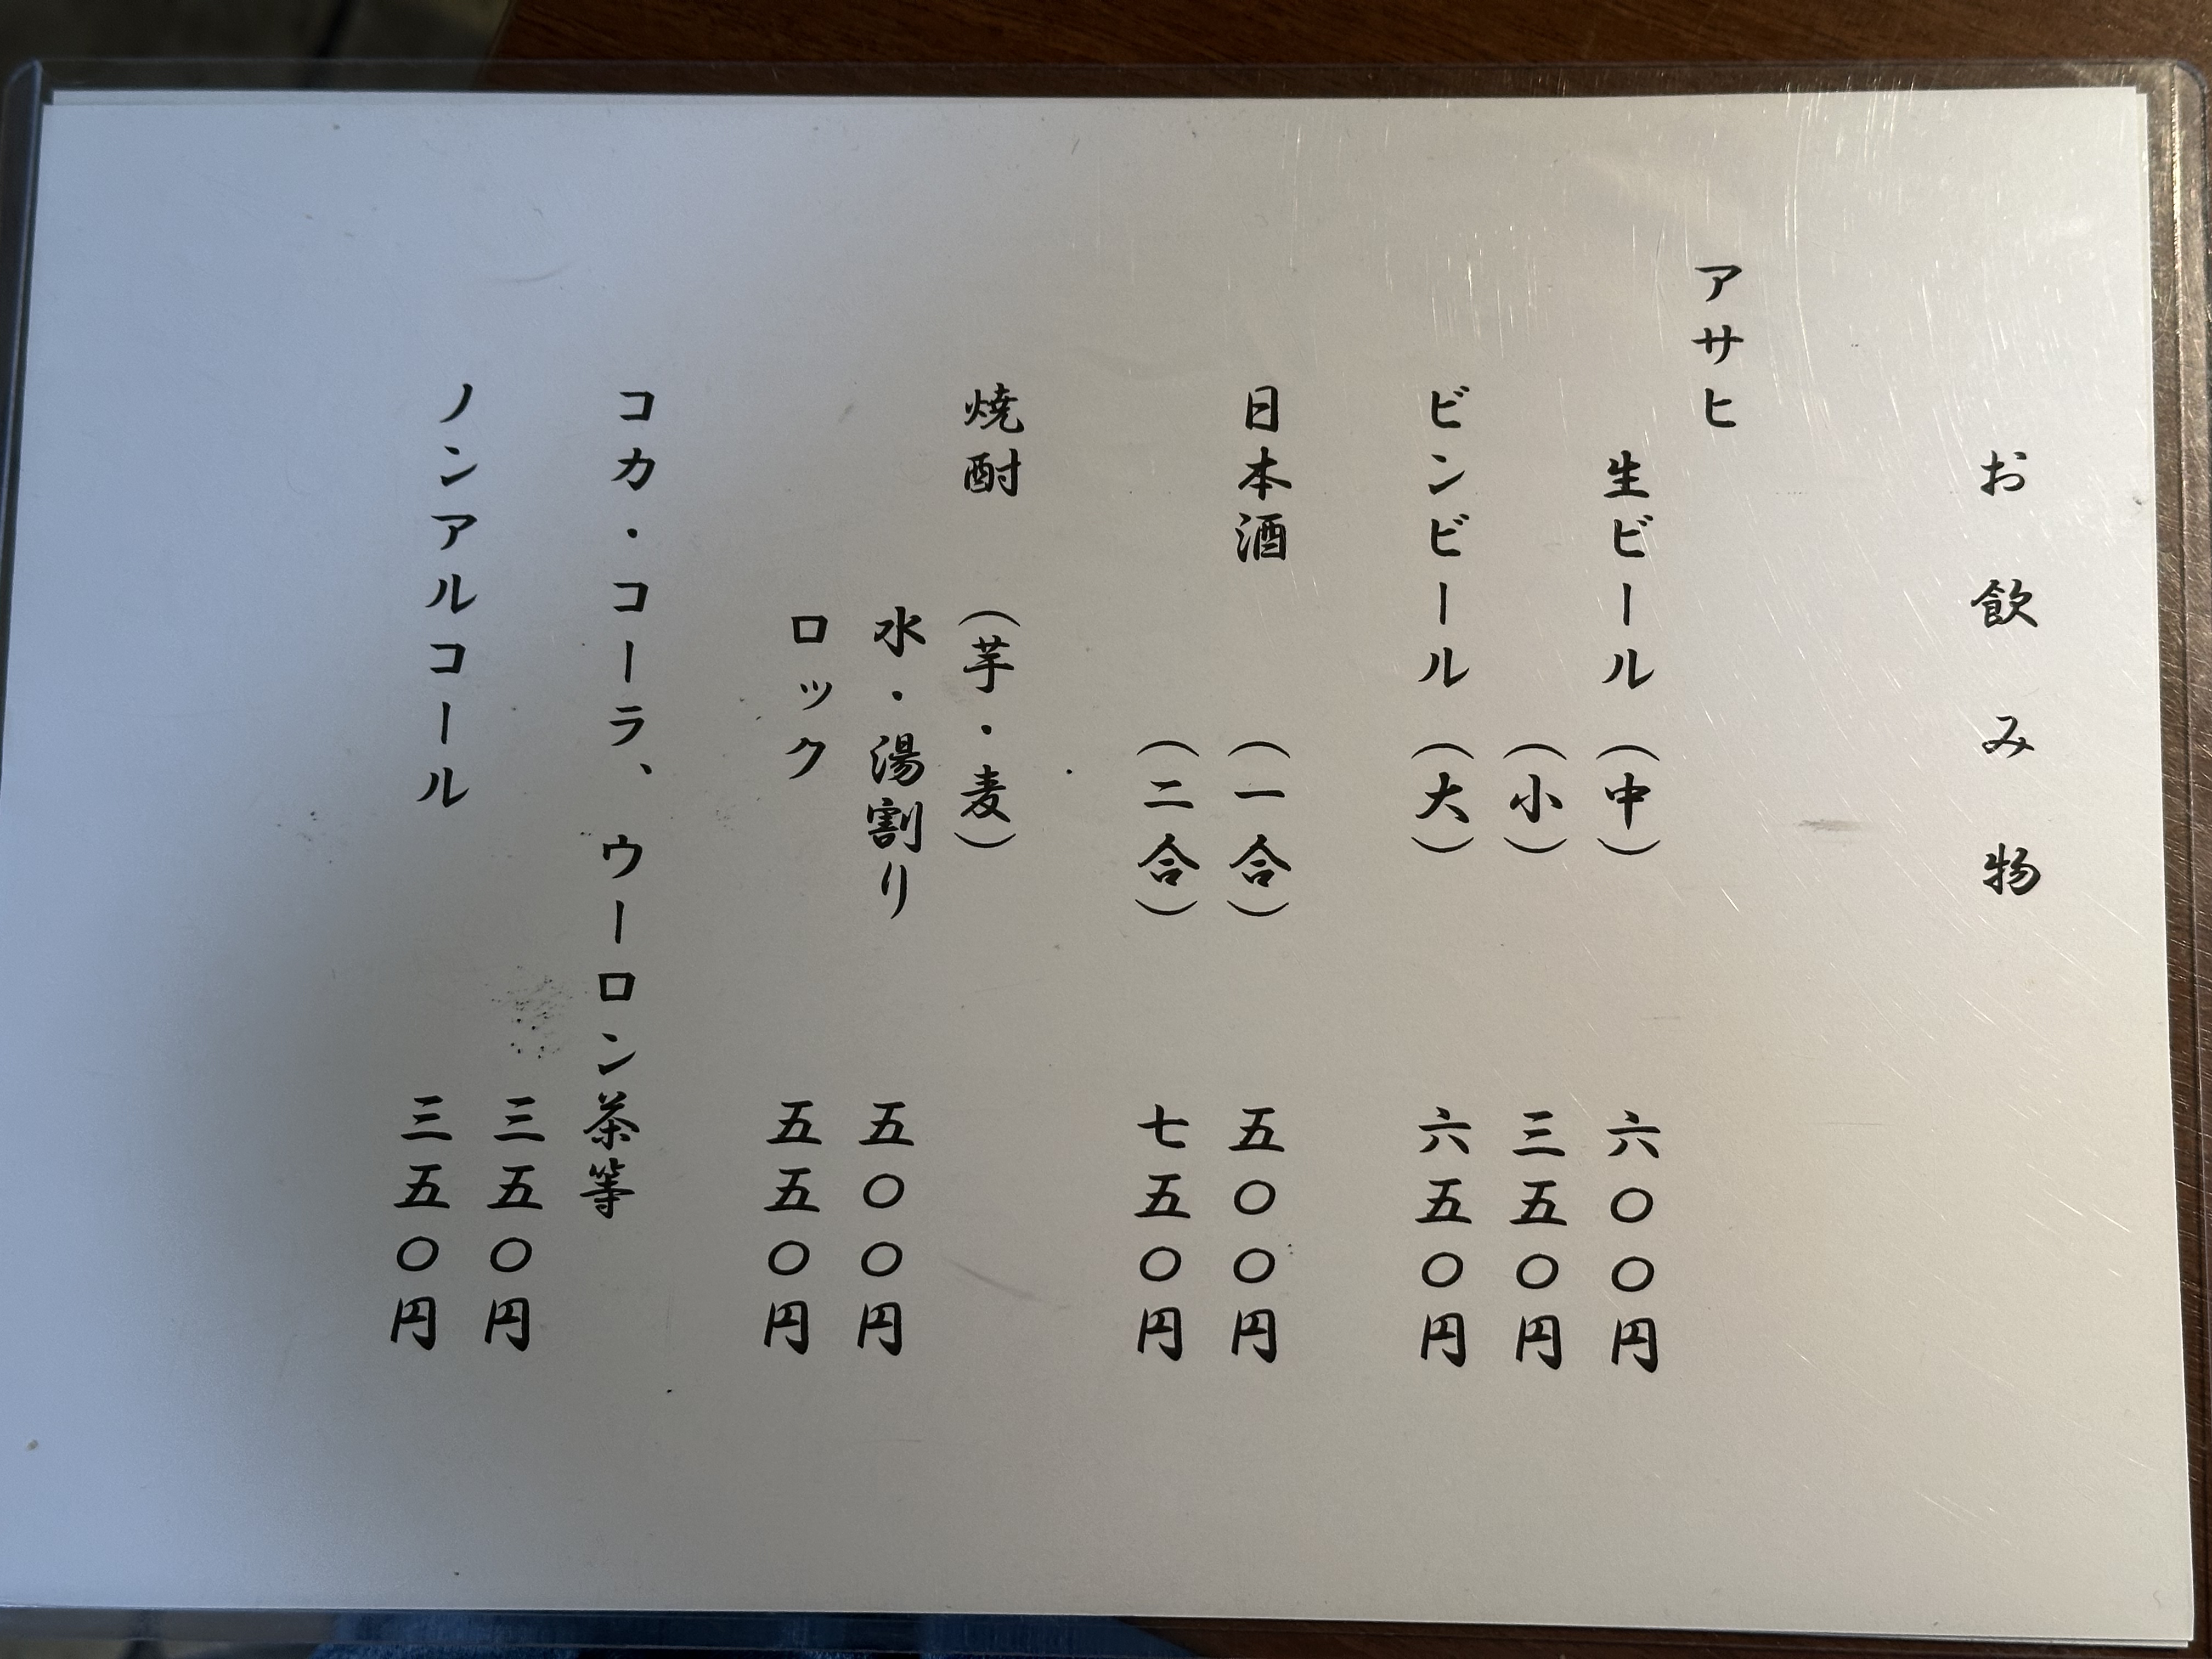 お飲み物
アサヒ
生ビール（中） 六〇〇円
（小） 三五〇円
ビンビール（大） 六五〇円
日本酒 （一合） 五〇〇円
（二合） 七五〇円
焼酎 （芋・麦）
水・湯割り 五〇〇円
ロック 五五〇円
コカ・コーラ、ウーロン茶等
三五〇円
ノンアルコール 三五〇円